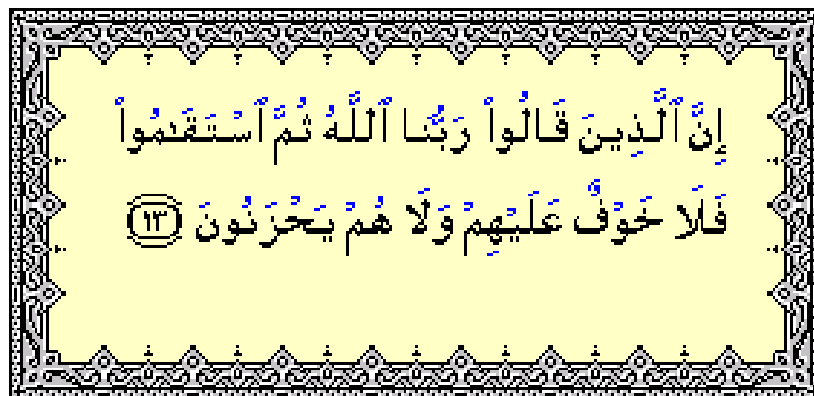 إِنَّ ٱلَّذِينَ قَالُوا۟ رَبُّنَا ٱللَّهُ ثُمَّ ٱسْتَقَـٰمُوا۟
فَلَا خَوْفٌ عَلَيْهِمْ وَلَا هُمْ يَحْزَنُونَ ﴿١٣﴾